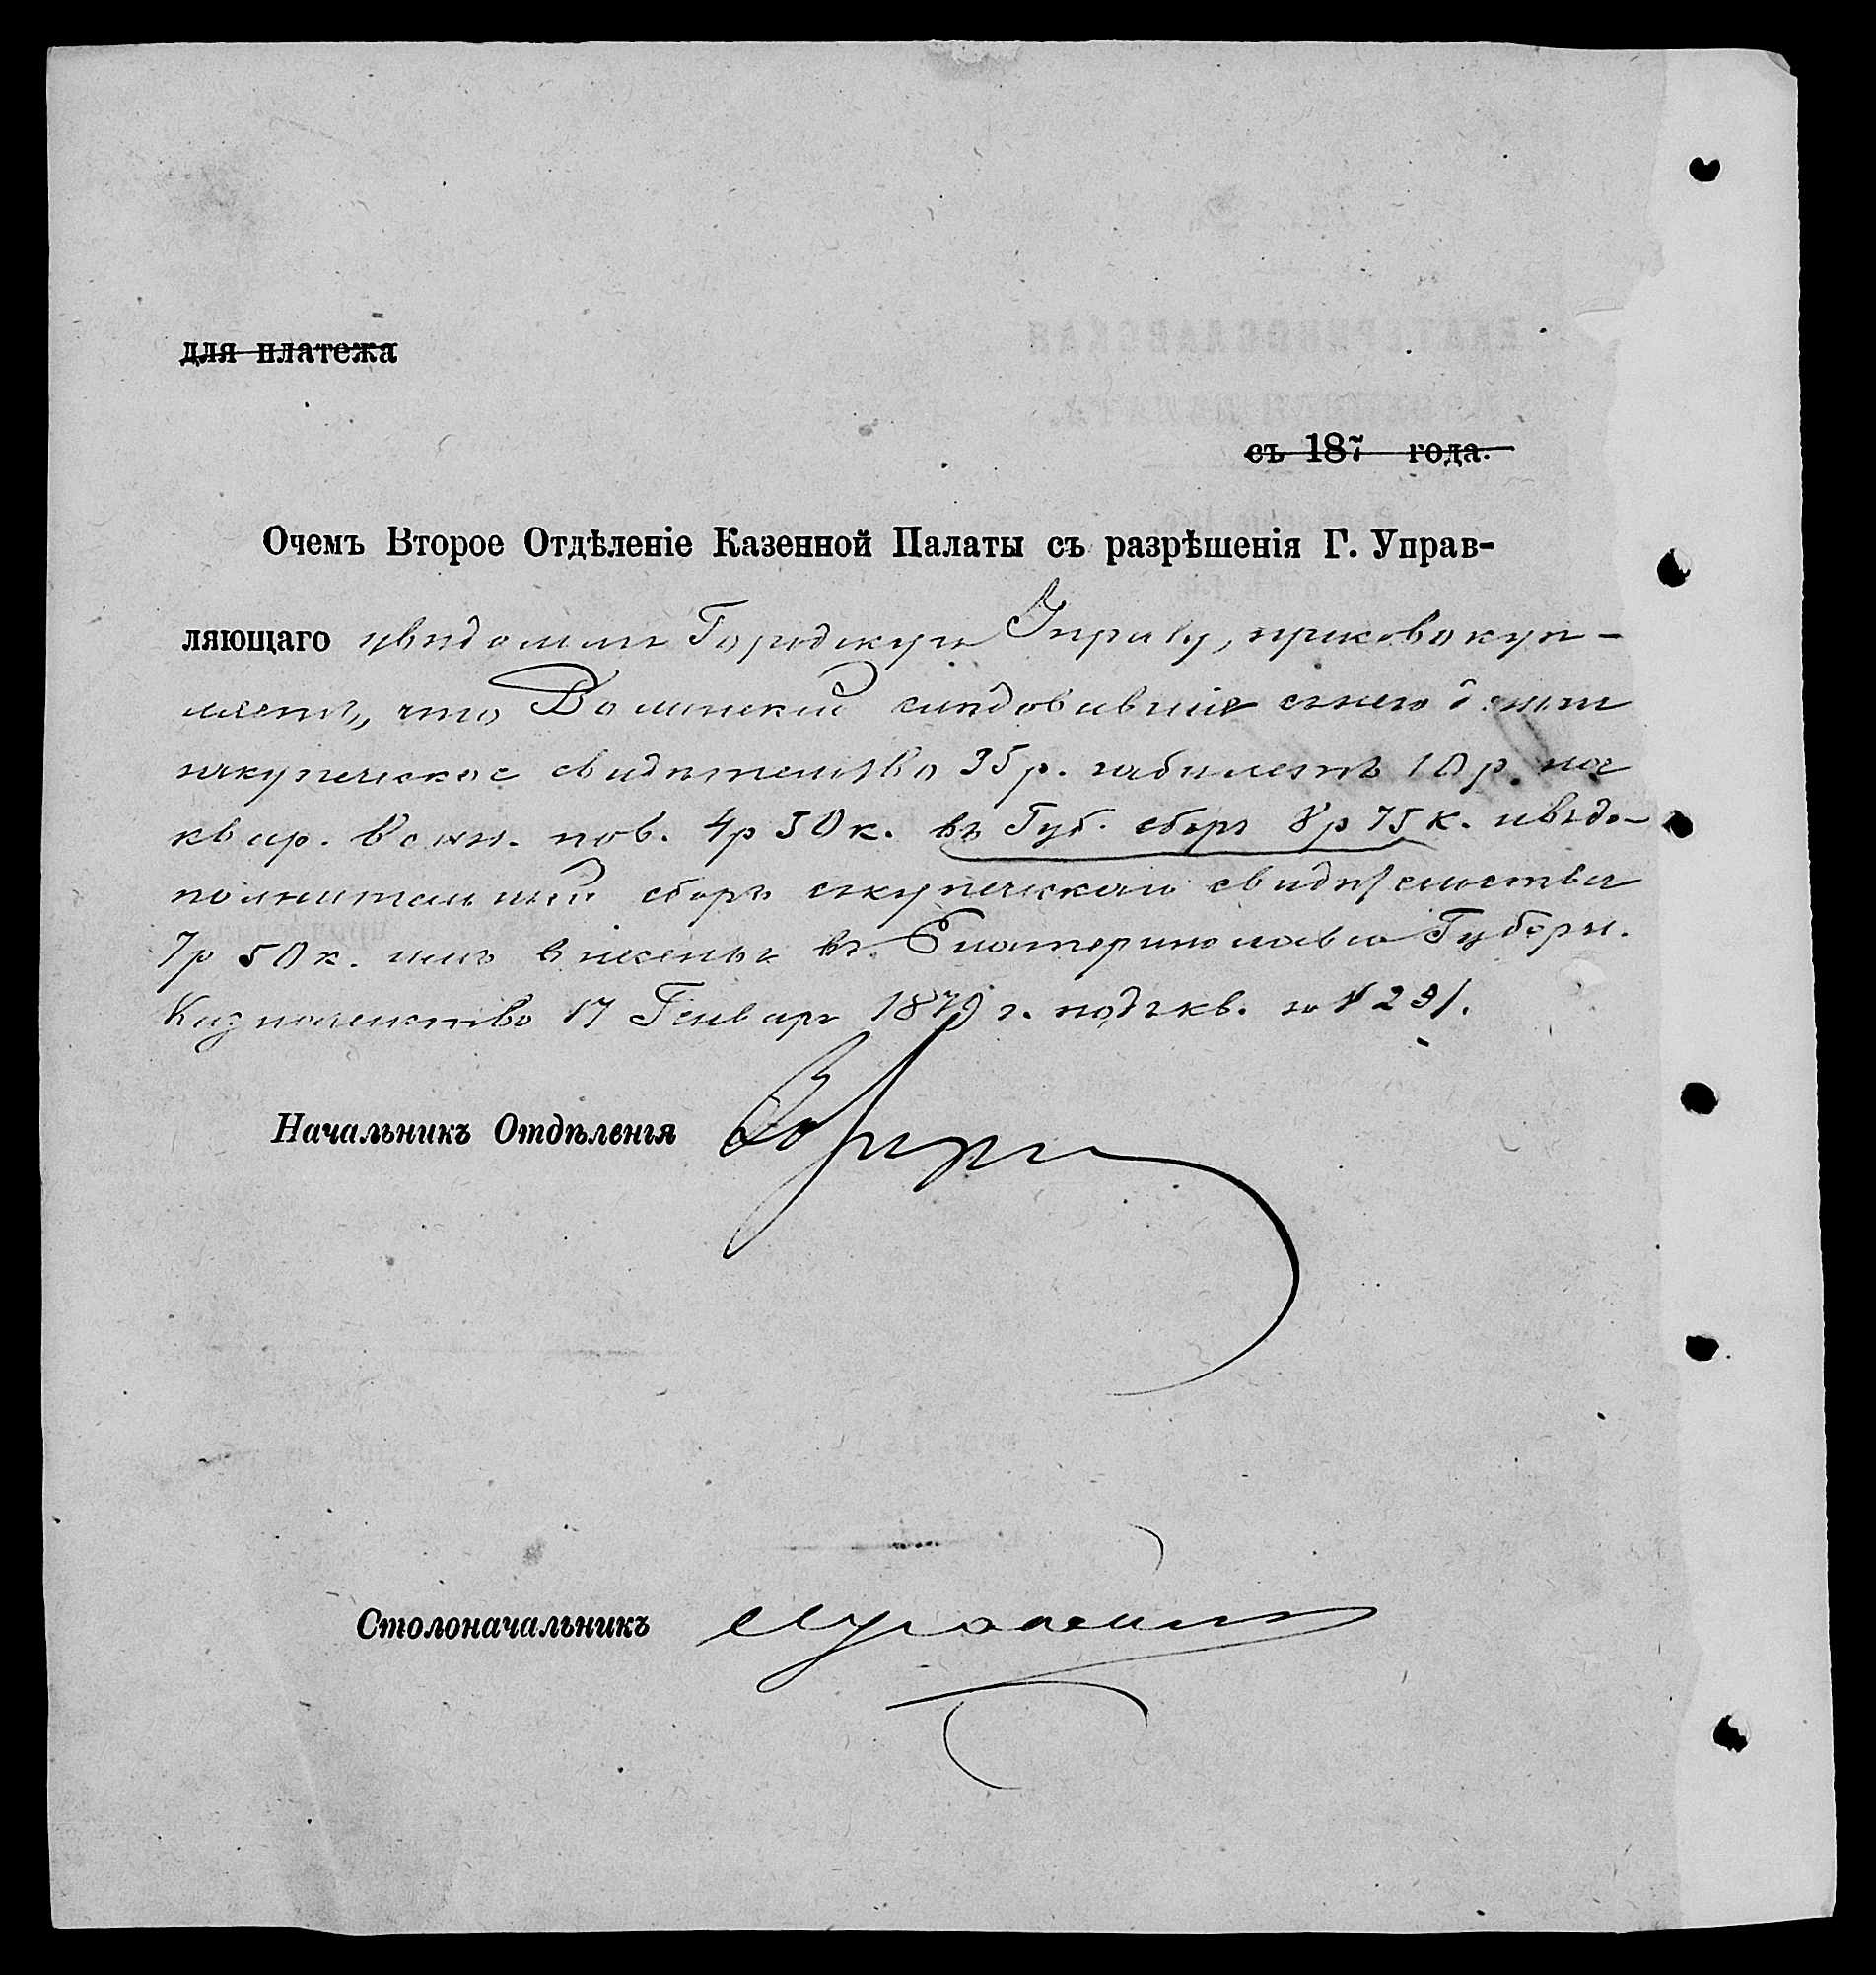 для платежа
съ 187 года.
Очемъ Второе Отдѣленіе Казенной Палаты съ разрѣшенія Г. Управ-
ляющаго увѣдомляя Городскую Управу, присовокуп-
ляетъ, что следовавшіе снего деньги
закупеческое свидѣтельство 35 р. забилетъ 10 р. на
квар. воин. пов. 4 р 50 к. въ Губ. сборъ 8 р 75 к. ивъ до-
полнительный сборъ скупеческаго свидѣтельства
7 р 50 к. имъ внесены въ Екатеринославское Губерн.
Казначейство 17 Генваря 1879 г. подъ кв. за № 291.
Начальникъ Отдѣленія
Столоначальникъ